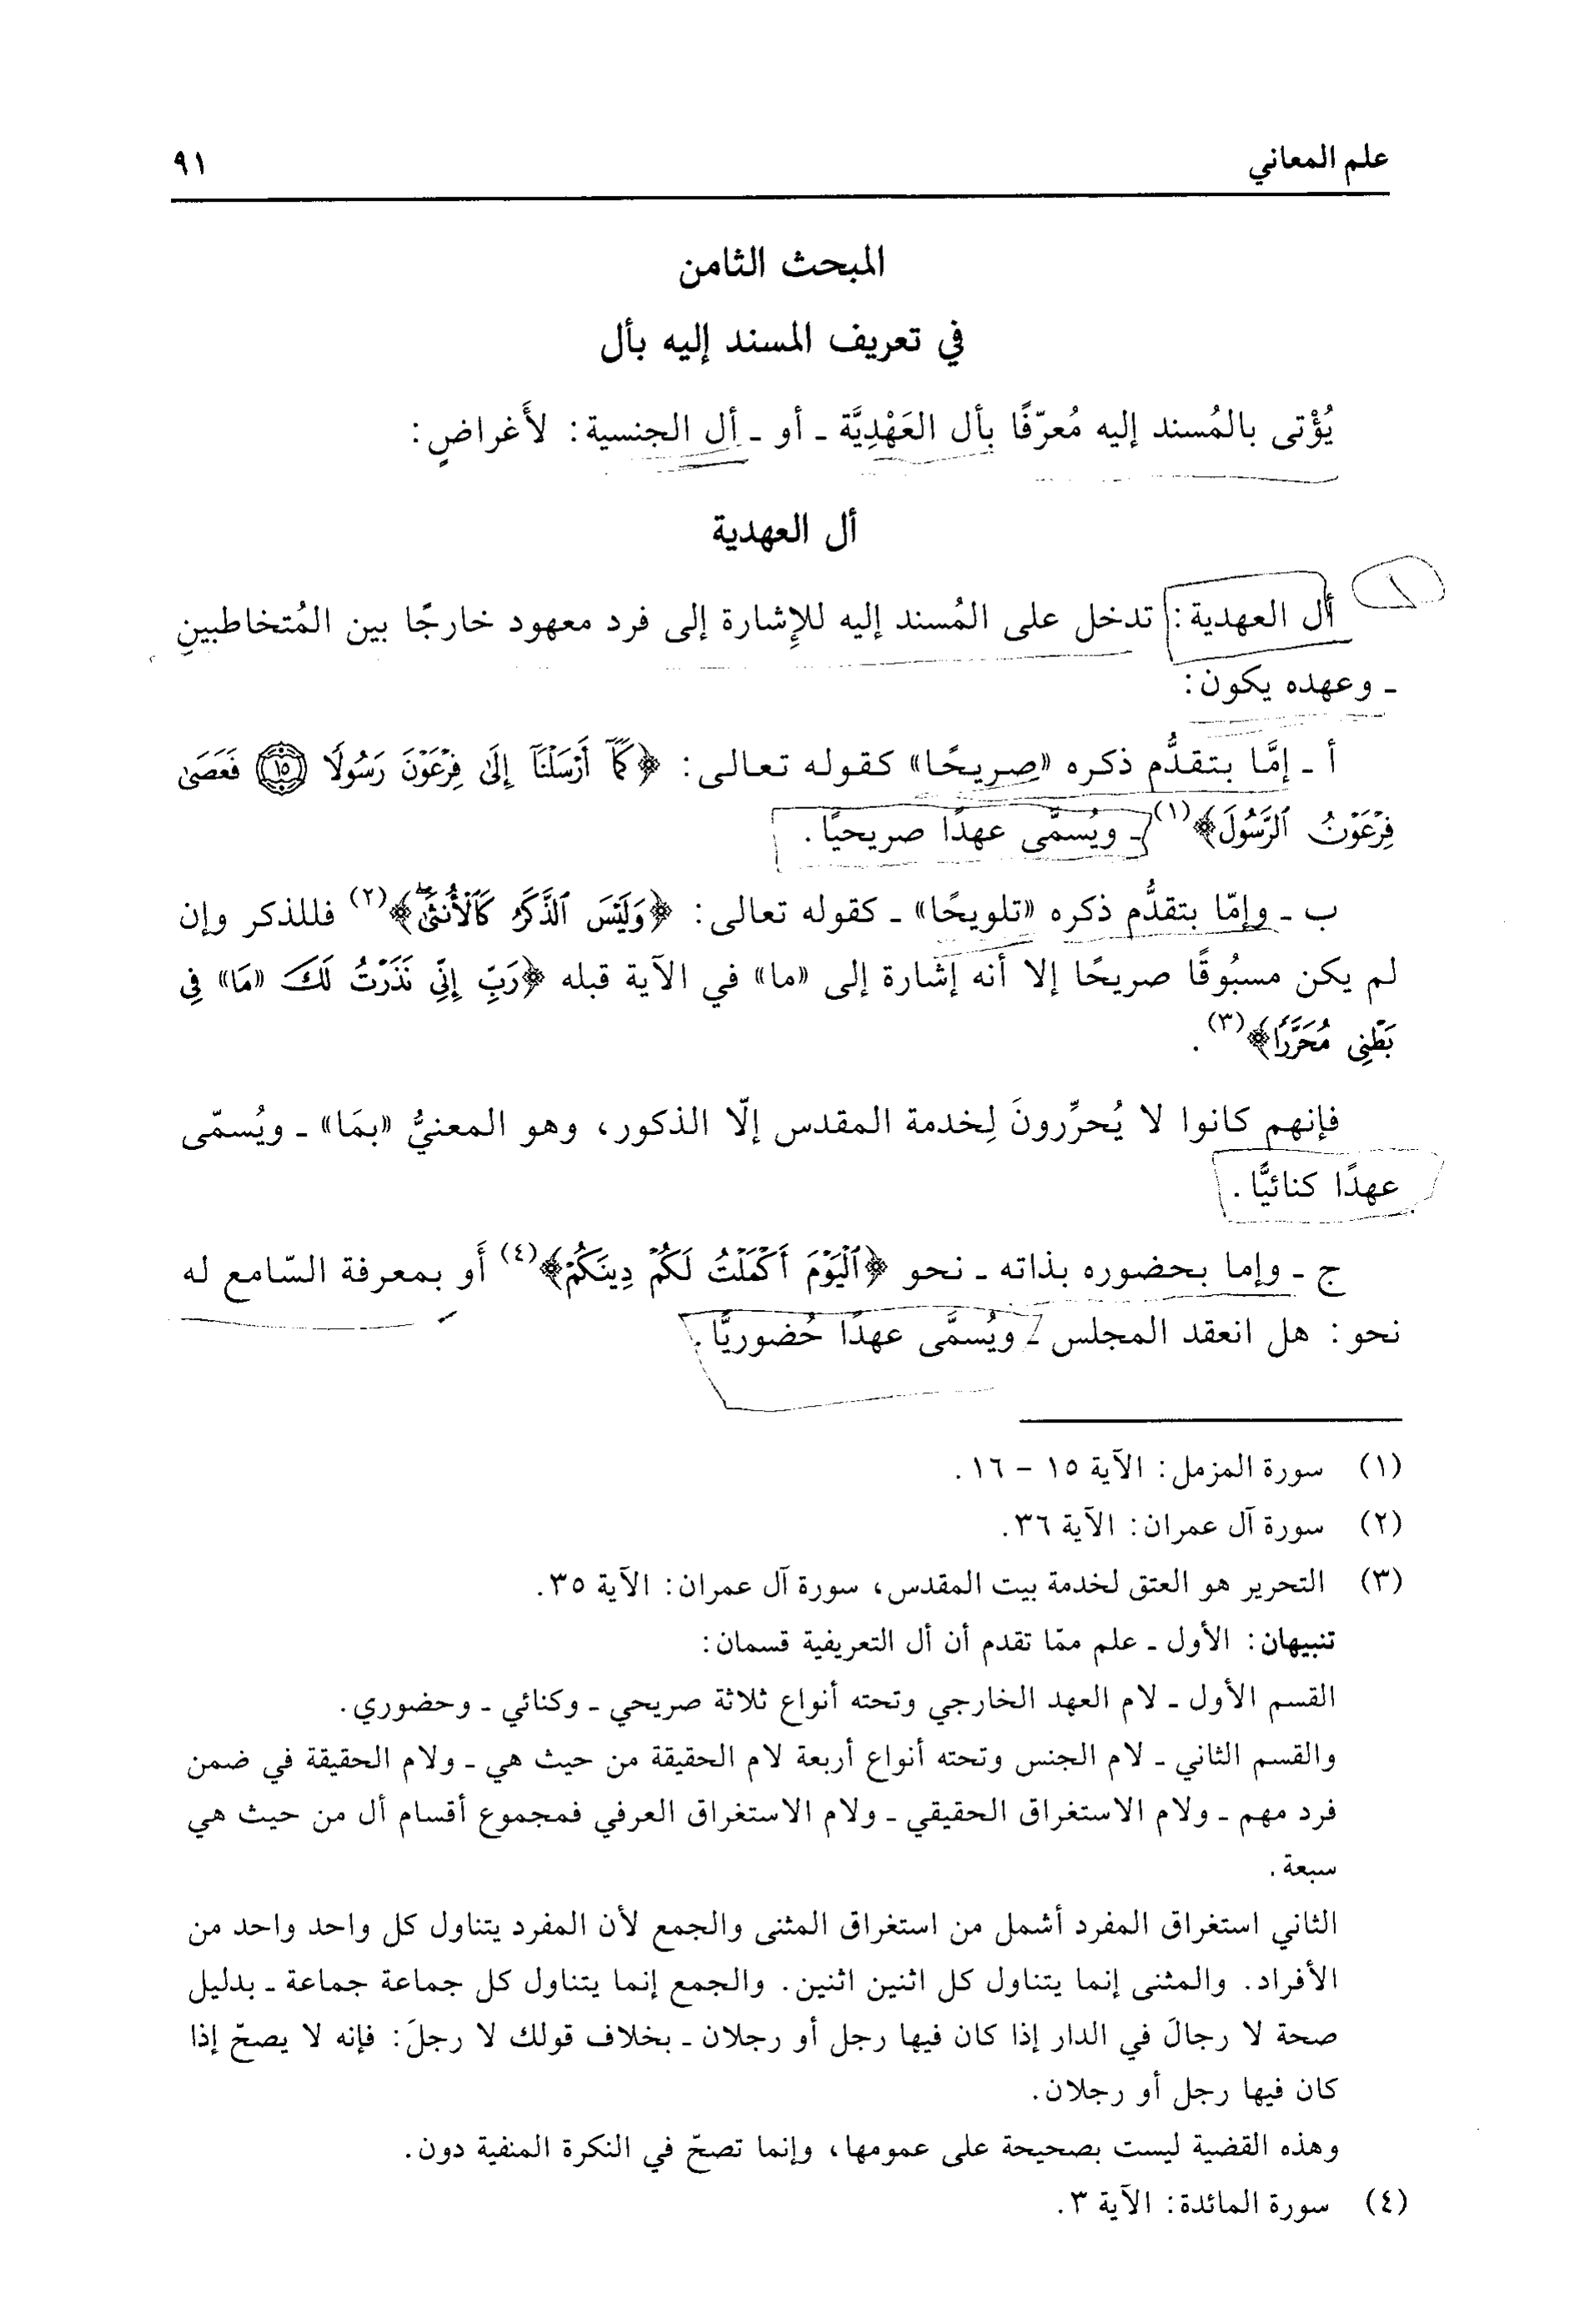 علم المعاني
٩١
المبحث الثامن
في تعريف المسند إليه بأل
يُؤْتى بالمُسند إليه مُعرّفًا بأل العَهْدِيَّة ـ أو ـ أل الجنسية: لأَغراضٍ:
أل العهدية
١
أل العهدية: تدخل على المُسند إليه للإِشارة إلى فرد معهود خارجًا بين المُتخاطبينِ
ـ وعهده يكون:
أ ـ إمَّا بتقدُّم ذكره «صريحًا» كقوله تعالى: ﴿كَمَآ أَرْسَلْنَآ إِلَىٰ فِرْعَوْنَ رَسُولًا ۝١٥ فَعَصَىٰ
فِرْعَوْنُ ٱلرَّسُولَ﴾(١) ـ ويُسمَّى عهدًا صريحيًا.
ب ـ وإمّا بتقدُّم ذكره «تلويحًا» ـ كقوله تعالى: ﴿وَلَيْسَ ٱلذَّكَرُ كَٱلْأُنثَىٰۖ﴾(٢) فللذكر وإن
لم يكن مسبُوقًا صريحًا إلا أنه إشارة إلى «ما» في الآية قبله ﴿رَبِّ إِنِّي نَذَرْتُ لَكَ «مَا» فِي
بَطْنِي مُحَرَّرًا﴾(٣).
فإنهم كانوا لا يُحرِّرونَ لِخدمة المقدس إلّا الذكور، وهو المعنيُّ «بمَا» ـ ويُسمّى
عهدًا كنائيًّا.
ج ـ وإما بحضوره بذاته ـ نحو ﴿ٱلْيَوْمَ أَكْمَلْتُ لَكُمْ دِينَكُمْ﴾(٤) أَو بمعرفة السّامع له
نحو: هل انعقد المجلس ـ ويُسمَّى عهدًا حُضوريًّا.
(١) سورة المزمل: الآية ١٥ – ١٦.
(٢) سورة آل عمران: الآية ٣٦.
(٣) التحرير هو العتق لخدمة بيت المقدس، سورة آل عمران: الآية ٣٥.
تنبيهان: الأول ـ علم ممّا تقدم أن أل التعريفية قسمان:
القسم الأول ـ لام العهد الخارجي وتحته أنواع ثلاثة صريحي ـ وكنائي ـ وحضوري.
والقسم الثاني ـ لام الجنس وتحته أنواع أربعة لام الحقيقة من حيث هي ـ ولام الحقيقة في ضمن
فرد مهم ـ ولام الاستغراق الحقيقي ـ ولام الاستغراق العرفي فمجموع أقسام أل من حيث هي
سبعة.
الثاني استغراق المفرد أشمل من استغراق المثنى والجمع لأن المفرد يتناول كل واحد واحد من
الأفراد. والمثنى إنما يتناول كل اثنين اثنين. والجمع إنما يتناول كل جماعة جماعة ـ بدليل
صحة لا رجالَ في الدار إذا كان فيها رجل أو رجلان ـ بخلاف قولك لا رجلَ: فإنه لا يصحّ إذا
كان فيها رجل أو رجلان.
وهذه القضية ليست بصحيحة على عمومها، وإنما تصحّ في النكرة المنفية دون.
(٤) سورة المائدة: الآية ٣.